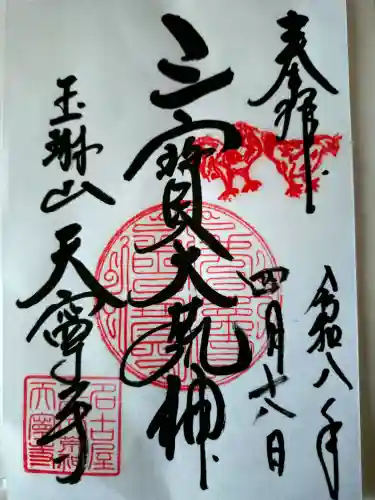 奉拝
令和八年
四月十八日
三寳大荒神
玉琳山
天寧寺
名古屋
天寧寺